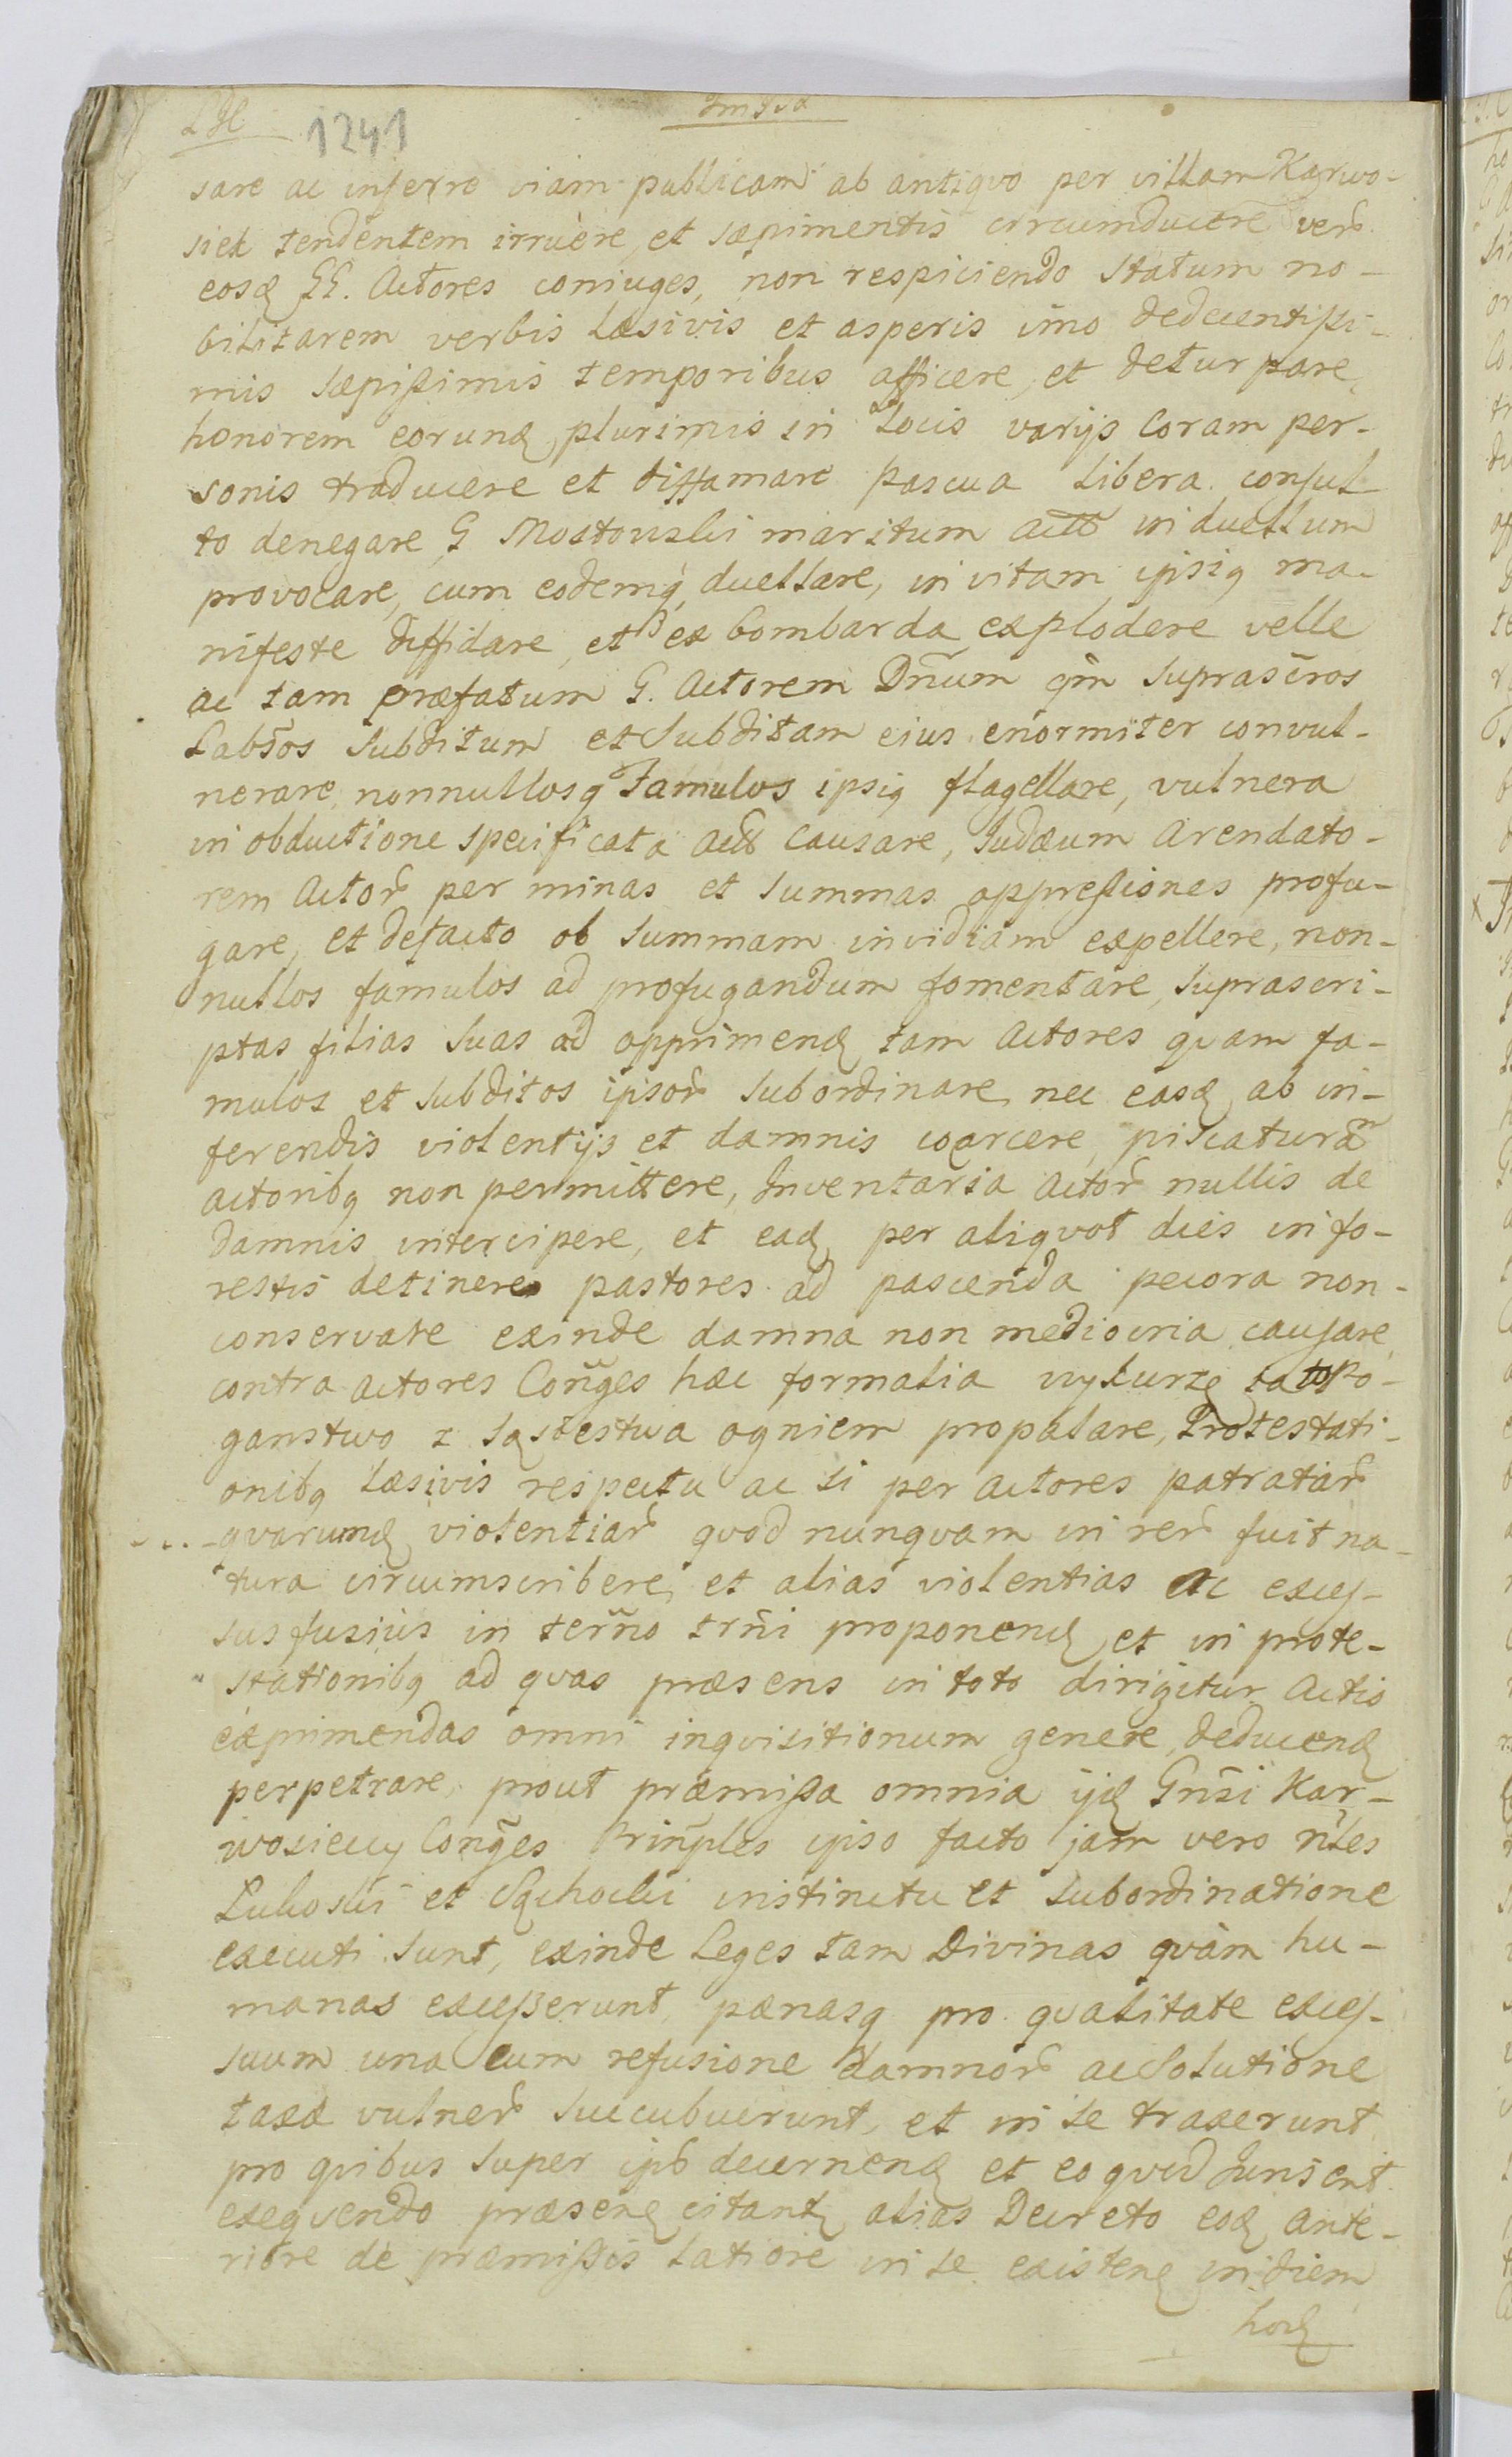 1241
sare ac inferre viam publicam ab antiqvo per villam Karwo-
siek tendentem irruere, et sæpimentis circumducere ver̃
eosq̃ GG. Actores coniuges, non respiciendo statum no-
bilitarem verbis læsivis et asperis im̃o dedecentissi-
mis sæpissimis temporibus afficere, et deturpare,
honorem eorunq̃ plurimis in Locis varijs coram per-
sonis traducere et diffamare pascua libera consul-
to denegare G Mostowski maritum in duellum
provocare, cum eodemq̃ duellare, in vitam ipsiq ma-
nifeste diffidare, et ex bombarda explodere velle
ac tam præfatum G. Actorem Dñum qm̃ suprascr̃os
Labs̃os subditum et subditam eius enormiter convul-
nerare, nonnullosq Famulos ipsiq flagellare, vulnera
in obductione specificata causare, Judæum Arendato-
rem Actor̃ per minas et summas oppressiones profu-
gare, et defacto ob summam invidiam expellere, non-
nullos famulos ad profugandum fomentare, suprascri-
ptas filias suas ad opprimenq̃ tam Actores qvam fa-
mulos et subditos ipsor̃ subordinare, nec easq̃ ab in-
ferendis violentijs et damnis coarcere, piscaturam
actoribq non permittere, Inventaria Actor̃ nullis de
damnis intercipere, et eaq̃ per aliqvot dies in fo-
restis detinere pastores ad pascenda pecora non-
conservate exinde damna non mediocria causare,
contra actores Conğes hæc formalia wykurzę to po-
ganstwo z sąsiestwa ogniem propalare, Protestati-
onibq læsivis respectu ac si per actores patratar̃
qvarumq̃ violentiar̃ qvod nunqvam in rer̃ fuit na-
tura circumscribere, et alias violentias ac exces-
sus fusius in term̃o trñi proponenq̃ et in prote-
stationibq ad qvas præsens in toto dirigitur Actio
exprimendas omni inqvisitionum genere deducenq̃
perpetrare, prout præmissa omnia ijq̃ Gnsi Kar-
wosieccy Conğes Prinples ipso facto jam vero ñles
et instinctu et subordinatione
executi sunt, exinde Leges tam Divinas qvàm hu-
manas excesserunt, pænasq pro qvalitate exces-
suum una cum refusione damnor̃ ac solutione
taxæ vulner̃ succubuerunt, et in se traxerunt
pro qvibus super ip̃s decernenq̃ et eo qvod Juris ent
exeqvendo præsenq̃ citantq̃ alias Decreto eoq̃ ante-
riore de præmissis latiore in se existenq̃ in diem